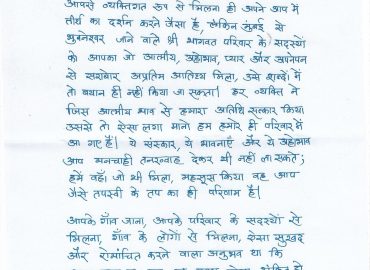 आपसे व्यक्तिगत रूप से मिलना ही अपने आप में
तीर्थ का दर्शन करने जैसा है, लेकिन मुंबई से
भुवनेश्वर जाने वाले श्री भागवत परिवार के सदस्यों
को आपका जो आत्मीय, अहोभाव, प्यार और अपनेपन
से सराबोर अप्रतिम आतिथ्य मिला, उसे शब्दों में
तो बयान ही नहीं किया जा सकता। हर व्यक्ति ने
जिस आत्मीय भाव से हमारा अतिथि सत्कार किया
उससे तो ऐसा लगा मानो हम हमारे ही परिवार में
आ गए हैं। ये संस्कार, ये भावनाएँ और ये अहोभाव
आप मनचाही तनख्वाह देकर भी नहीं ला सकते;
हमें वहाँ जो भी मिला, महसूस किया वह आप
जैसे तपस्वी के तप का ही परिणाम है।
आपके गाँव जाना, आपके परिवार के सदस्यों से
मिलना, गाँव के लोगों से मिलना, ऐसा सुखद
और रोमांचित करने वाला अनुभव था कि